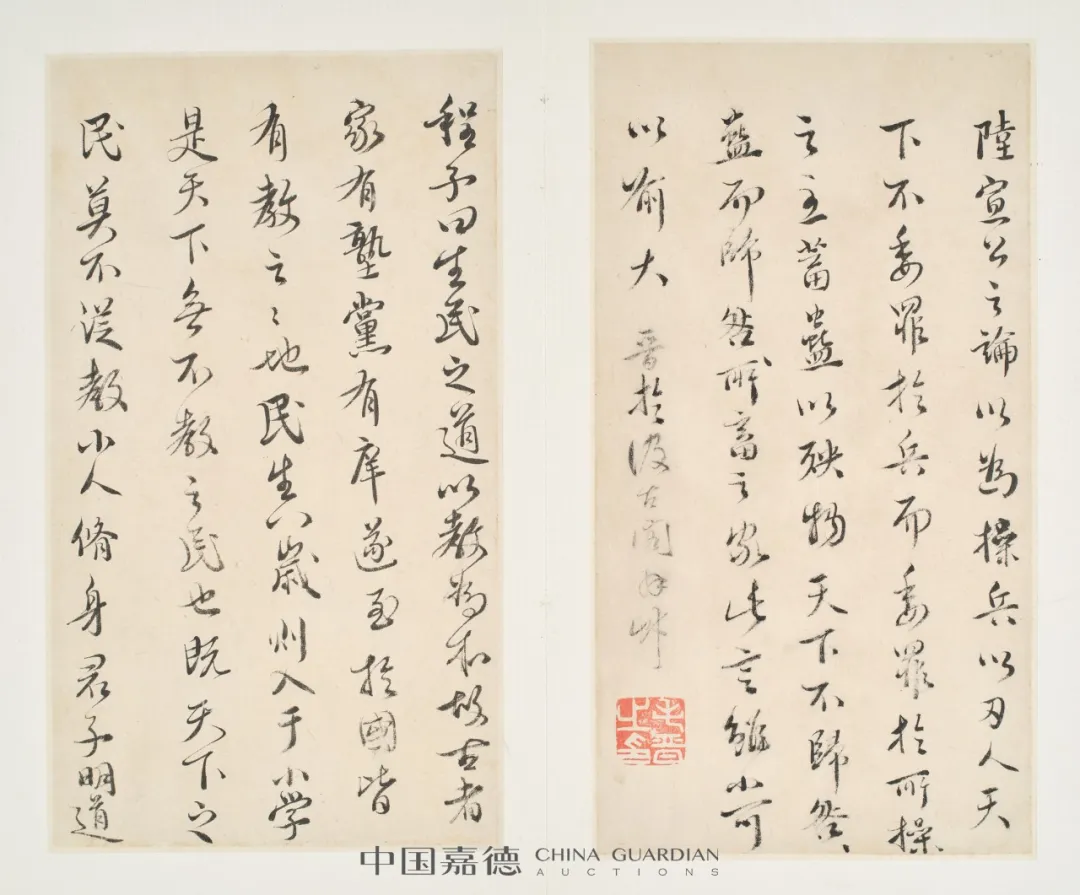 陸宣公之論以為操兵以刃人天
下不委罪於兵而委罪於所操
之主蓄蠱以殃物天下不歸咎於
蠱而歸咎於所蓄之家此言雖小可
以喻大
晉於汲古閣
毛晉之印
程子曰生民之道以教為本故古者
家有塾黨有庠遂至於國皆
有教之〻地民生八歲則入于小學
是天下無不教之民也既天下之
民莫不從教小人脩身君子明道
中国嘉德 CHINA GUARDIAN
AUCTIONS